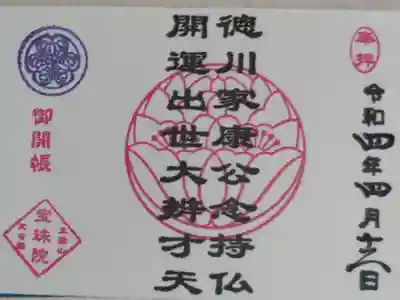 奉拝
令和四年四月十六日
徳川家康公念持仏
開運出世大辨才天
御開帳
三縁山
宝珠院